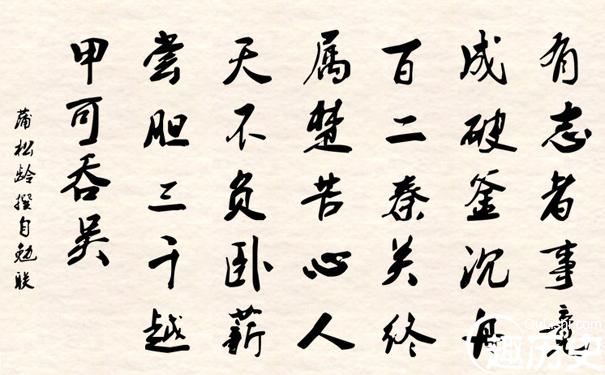 有志者事竟
成破釜沉舟
百二秦关终
属楚苦心人
天不负卧薪
尝胆三千越
甲可吞吴
蒲松龄撰自勉联
趣历史